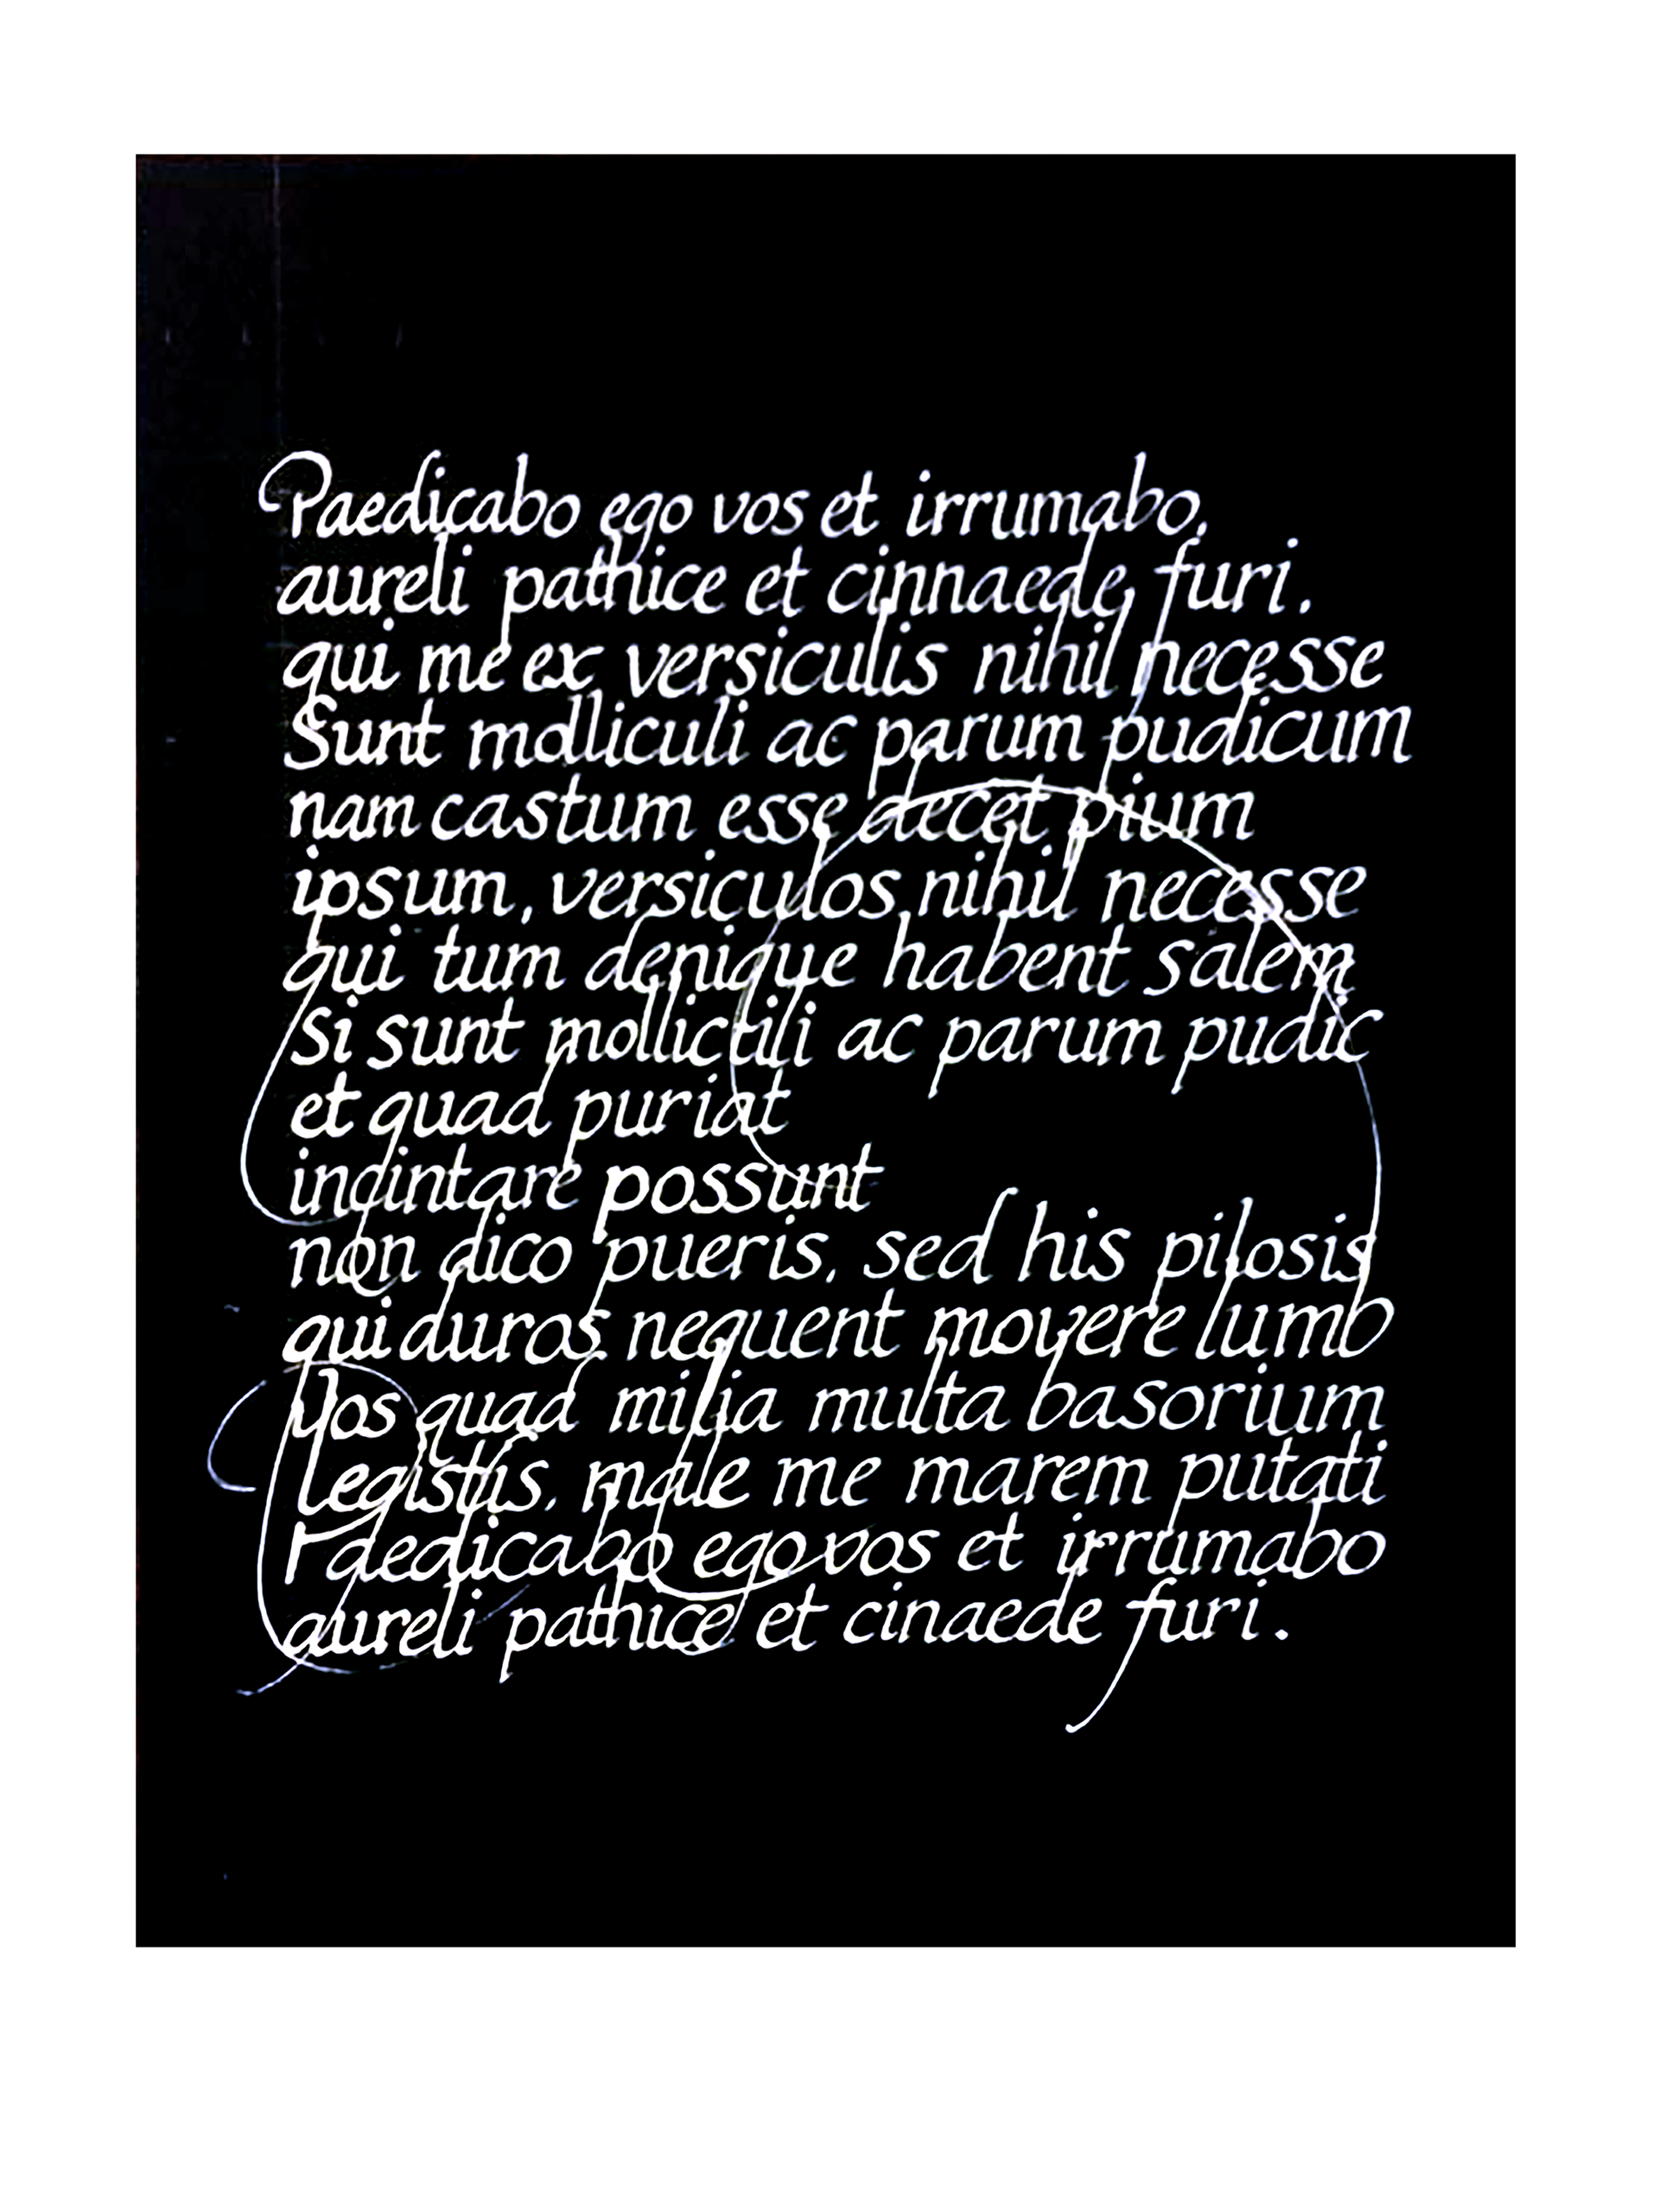 Paedicabo ego vos et irrumabo,
aureli pathice et cinnaede, furi.
qui me ex versiculis nihil necesse
Sunt molliculi ac parum pudicum
nam castum esse decet pium
ipsum, versiculos nihil necesse
qui tum denique habent salem
si sunt molliculi ac parum pudic
et quad puriat
incintare possunt
non dico pueris, sed his pilosis
qui duros nequent movere lumb
Vos quad milia multa basorium
legistis, male me marem putati
Paedicabo ego vos et irrumabo
aureli pathice et cinaede furi.